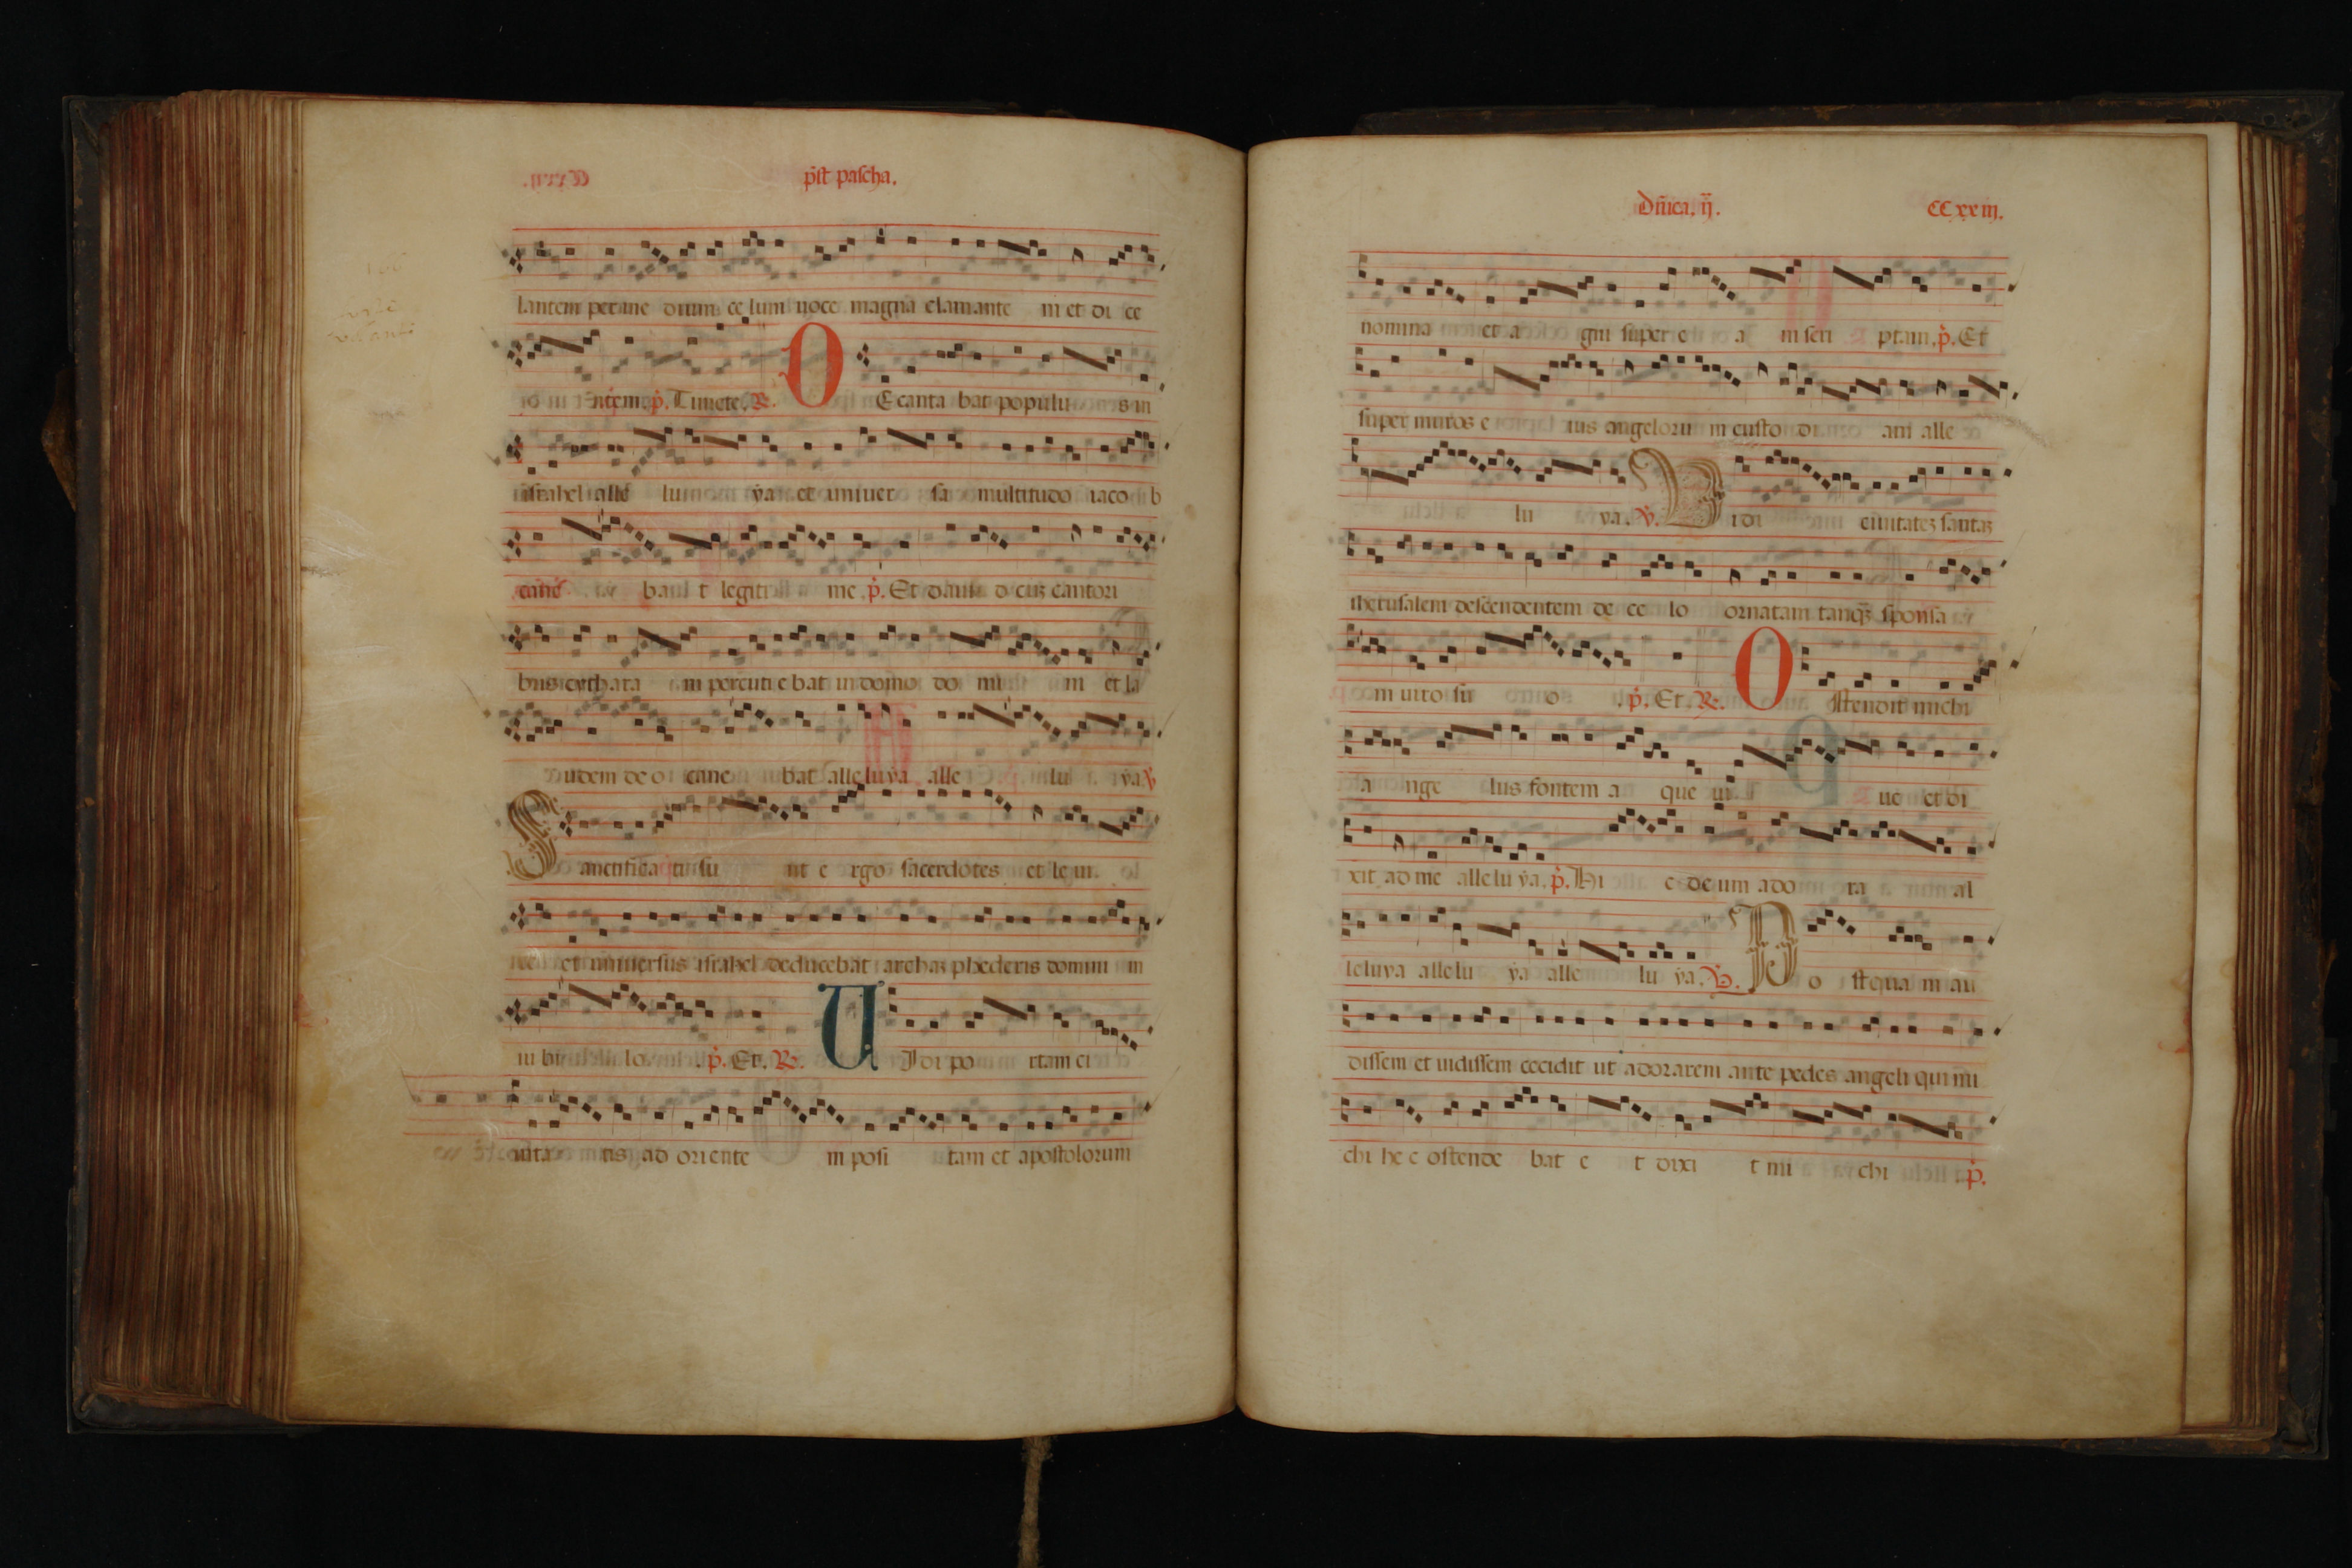 p̄st pascha.
lantem per me dium ce lum uoce magna clamante m et di ce
ntem. p̄. Tunete. R. D E canta bat populu s in
israhel alle lu ya et uniuer sa multitudo iaco b
cane ba t legiti me p̄. Et dauid cuʒ cantori
bus cythara m percuti e bat in domo do mi ni et la
udem de o cane bat alleluya alle lu ya V
S anctifica ti su nt e rgo sacerdotes et le ui
te et uniuersus israhel deducebat archaʒ phederis domini in
iu bi lo. p̄. Et. R. U Idi po rtam ci
uita tis ad oriente m posi tam et apostolorum
Dn̄ica. ij. CCxxiij.
nomina et a gni super e a m scri ptam. p̄. Et
super muros e ius angeloru m custo di am alle
lu ya. V. V idi ciuitateʒ sanctaʒ
iherusalem descendentem de ce lo ornatam tanqʒ sponsa
m uiro su o . p̄. Et. R. O stendit michi
a nge lus fontem a que ui ue et di
xit ad me alleluya. p̄. Hi c deum ado ra al
leluya allelu ya alle lu ya. V. P o stqua m au
dissem et uidissem cecidit ut adorarem ante pedes angeli qui mi
chi he c ostende bat e t dixi t mi chi p̄.